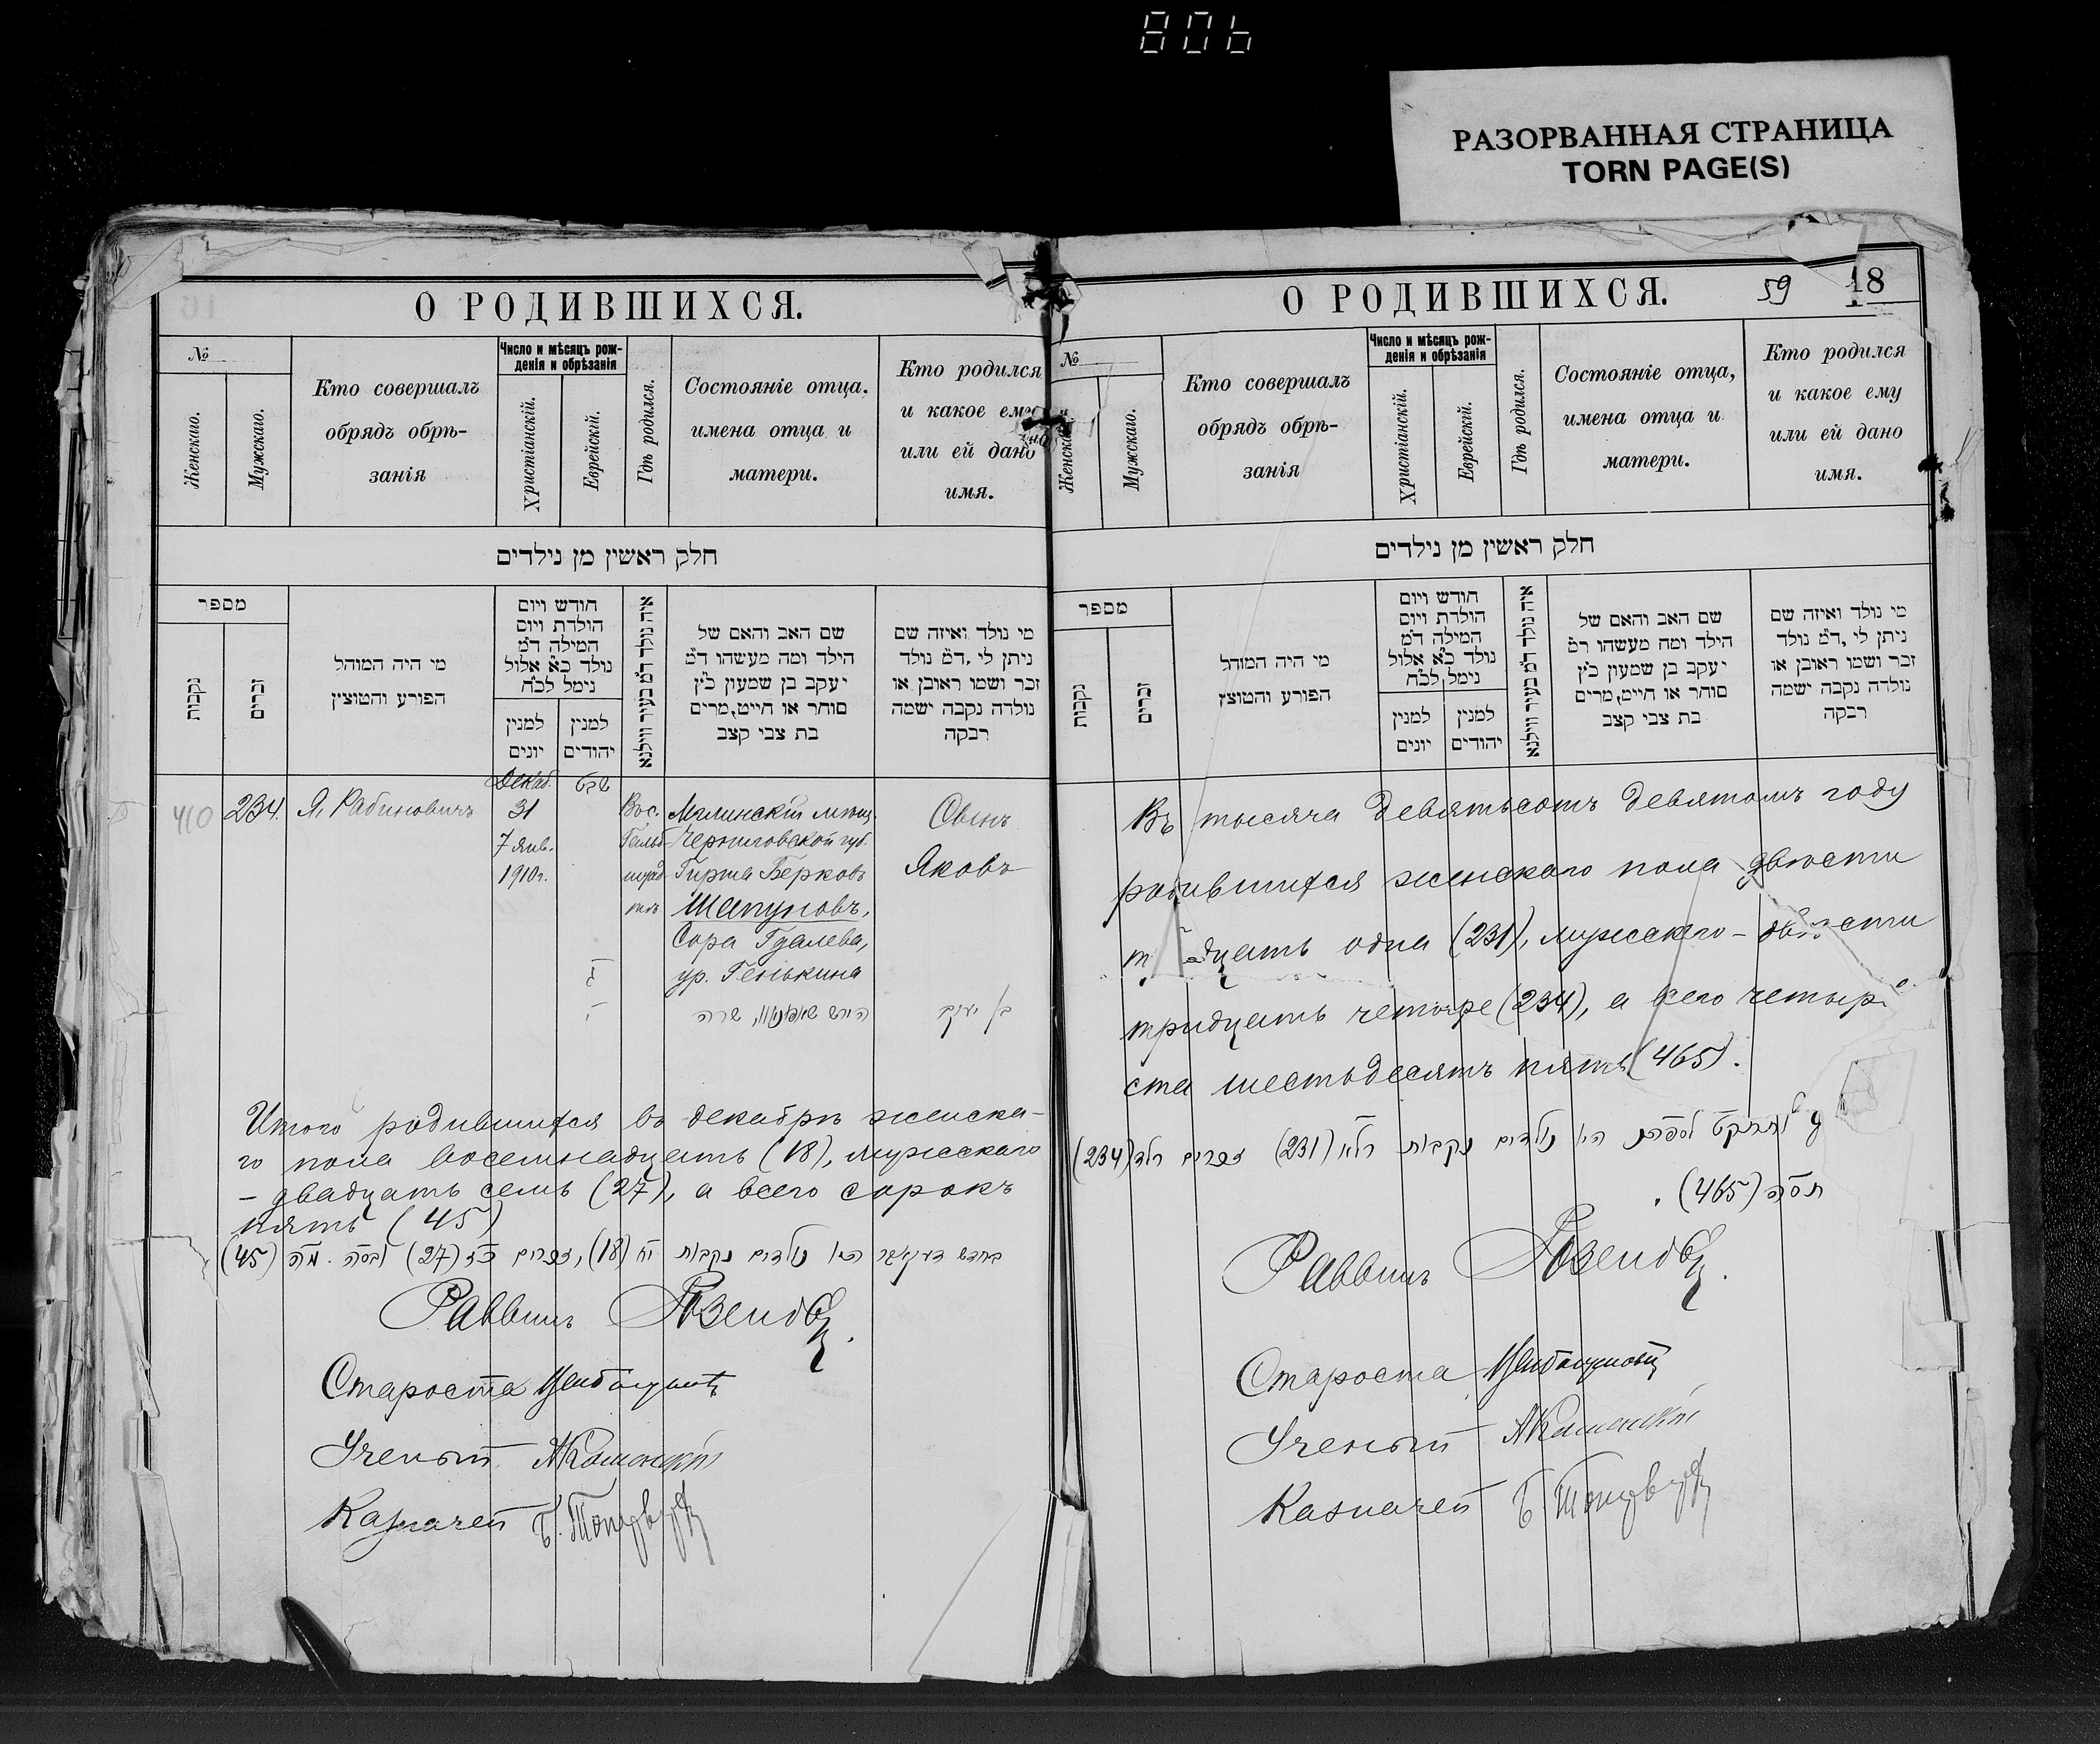 806
РАЗОРВАННАЯ СТРАНИЦА
TORN PAGE(S)
О РОДИВШИХСЯ.
№
Женскаго.
Мужскаго.
Кто совершалъ
обрядъ обрѣ-
занія
Число и мѣсяцъ рож-
денія и обрѣзанія
Христіанскій.
Еврейскій.
Гдѣ родился.
Состояніе отца.
имена отца и
матери.
Кто родился
и какое ему
или ей дано
имя.
חלק ראשין מן נילדים
מספר
נקבות
זכרים
מי היה המוהל
הפורע והמוצץ
חודש ויום
הולדת ויום
המילה ד״מ
נולד כ״א אלול
נימל לכ״ח
למנין
יונים
למנין
יהודים
איה נולד ד״מ בעיר ווילנא
שם האב והאם של
הילד ומה מעשהו ד״מ
יעקב בן שמעון כ״ץ
סוחר או חייט, מרים
בת צבי קצב
מי נולד ואיזה שם
ניתן לי, ד״מ נולד
זכר ושמו ראובן או
נולדה נקבה ישמה
רבקה
410
234
Я. Рабиновичъ
Декаб.
31
7 янв.
1910г.
שבט
Мглинскій мѣщ.
Черниговской губ.
Гирша Берковъ
Шапуновъ,
Сора Гдалева,
ур. Генькина
Овенъ
Яковъ
Итого родившихся въ декабрѣ женска-
го пола восемнадцать (18), мужскаго
- двадцать семь (27), а всего сорокъ
пять (45)
בחדש דעקאבר היו נולדים נקבות יח (18), זכרים כז (27) ובסה. מה (45)
Раввинъ
Староста
Ученый
Казначей
О РОДИВШИХСЯ.
59
18
№
Женскаго
Мужскаго.
Кто совершалъ
обрядъ обрѣ-
занія
Число и мѣсяцъ рож-
денія и обрѣзанія
Христіанскій.
Еврейскій.
Гдѣ родился.
Состояніе отца,
имена отца и
матери.
Кто родился
и какое ему
или ей дано
имя.
חלק ראשין מן נילדים
מספר
נקבות
זכרים
מי היה המוהל
הפורע והמוצץ
חודש ויום
הולדת ויום
המילה ד״מ
נולד כ״א אלול
נימל לכ״ח
למנין
יונים
למנין
יהודים
איה נולד ד״מ בעיר ווילנא
שם האב והאם של
הילד ומה מעשהו ד״מ
יעקב בן שמעון כ״ץ
סוחר או חייט, מרים
בת צבי קצב
מי נולד ואיזה שם
ניתן לי, ד״מ נולד
זכר ושמו ראובן או
נולדה נקבה ישמה
רבקה
Въ тысяча девятьсотъ девятомъ году
родившихся женскаго пола двѣсти
тридцать одна (231), мужскаго - двѣсти
тридцать четыре (234), а всего четыре
ста шестьдесятъ пять (465).
היו נולדים נקבות רלא (231) זכרים רלד (234)
תסה (465).
Раввинъ
Староста
Ученый
Казначей